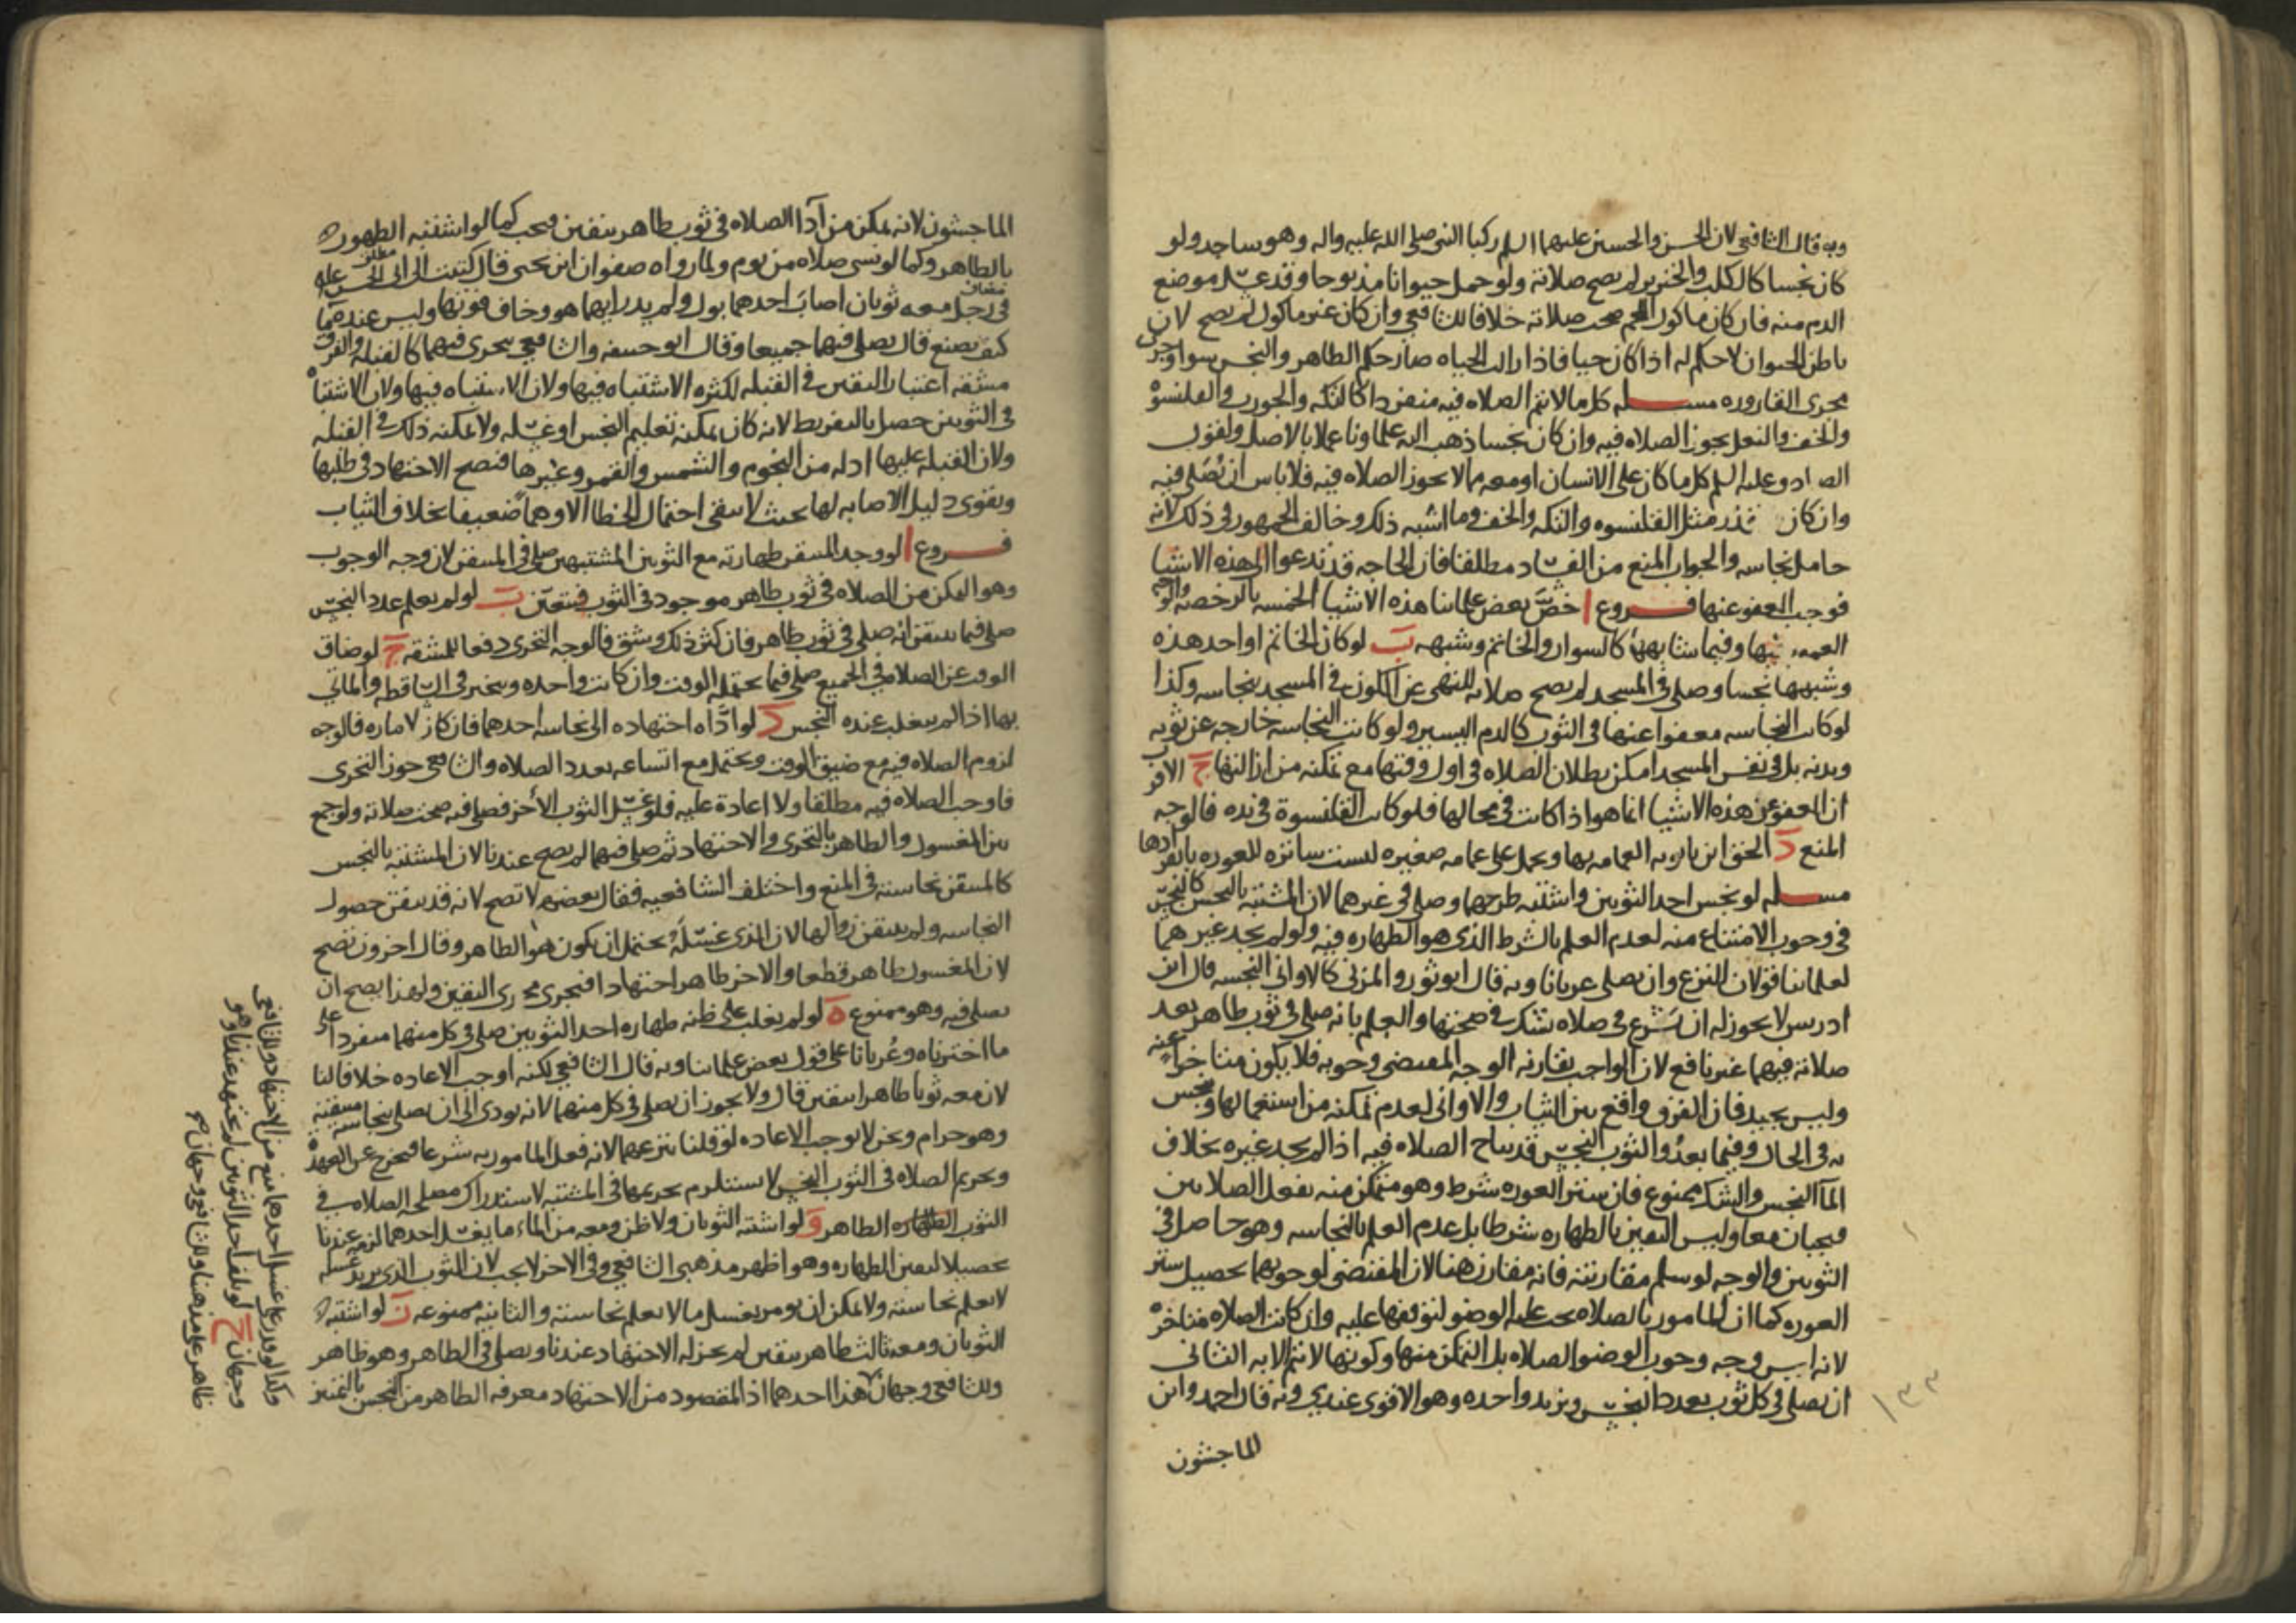 وبه قال الشافعي لان الحسن والحسين عليهما السلم ركبا النبي صلى الله عليه واله وهو ساجد ولو
كان نجسا كالكلب والخنزير لم يصح صلاته ولو حمل حيوانا مذبوحا وقد غسل موضع
الدم منه فان كان ماكول اللحم صحت صلاته خلافا للشافعي وان كان غير ماكول لم يصح لان
باطن الحيوان لا حكم له اذا كان حيا فاذا زالت الحياه صار حكم الظاهر والنجس سوا وجرى
مجرى القاروره مسله كل ما لا تتم الصلاه فيه منفردا كالتكه والجورب والقلنسوه
والخف والنعل يجوز الصلاه فيه وان كان نجسا ذهب اليه علماونا عملا بالاصل ولقول
الصادق عليه السلم كل ما كان على الانسان او معه مما لا يجوز الصلاه فيه فلا باس ان يصلى فيه
وان كان قذر مثل القلنسوه والتكه والخف وما اشبه ذلك وخالف الجمهور في ذلك لانه
حامل نجاسه والجواب المنع من الفساد مطلقا فان الحاجه قد تدعوا الى هذه الاشيا
فوجب العفو عنها فروع ا خص بعض علمائنا هذه الاشيا الخمسه بالرخصه والوجه
العموم فيها وفيما شابهها كالسوار والخاتم وشبهه ب لو كان الخاتم او احد هذه
وشبهها نجسا وصلى في المسجد لم يصح صلاته للنهي عن الكون في المسجد بنجاسه وكذا
لو كانت النجاسه معفوا عنها في الثوب كالدم اليسير ولو كانت النجاسه خارجه عن ثوبه
وبدنه بل في نفس المسجد امكن بطلان الصلاه في اول وقتها مع تمكنه من ازالتها ج الاقرب
ان العفو عن هذه الاشيا انما هو اذا كانت في محالها فلو كانت القلنسوة في يده فالوجه
المنع د الحق ابن بابويه العمامه بها ويحمل على عمامه صغيره ليست ساتره للعوره بانفرادها
مسله لو نجس احد الثوبين واشتبه طرحهما وصلى في غيرهما لان المشتبه بالنجس كالنجس
في وجوب الامتناع منه لعدم العلم بالشرط الذي هو الطهاره فيه ولو لم يجد غيرهما
لعلمائنا قولان النزع وان يصلي عريانا وبه قال ابو ثور والمزني كالاواني النجسه قال ابن
ادريس لا يجوز له ان يشرع في صلاه يشك في صحتها والعلم بانه صلى في ثوب طاهر بعد
صلاته فيهما غير نافع لان الواجب يقارنه الوجه المقتضي وجوبه فلا يكون متاخرا عنه
وليس بجيد فان الفرق واقع بين الثياب والاواني لعدم تمكنه من استعمالها ونجس
به في الحال وفيما بعد والثوب النجس قد يباح الصلاه فيه اذا لم يجد غيره بخلاف
الما النجس والشك ممنوع فان ستر العوره شرط وهو متمكن منه بفعل الصلاتين
فيجبان معا وليس اليقين بالطهاره شرطا بل عدم العلم بالنجاسه وهو حاصل في
الثوبين والوجه لو سلم مقارنته فانه مقارن هنا لان المقتضي لوجوبهما تحصيل ستر
العوره كما ان المامور بالصلاه يجب عليه الوضو لتوقفها عليه وان كانت الصلاه متاخره
لانه ليس وجه وجوب الوضو الصلاه بل التمكن منها وكونها لا تتم الا به الثاني
ان يصلي في كل ثوب بعدد النجس ويزيد واحده وهو الاقوى عندي وبه قال احمد وابن
الماجشون
١٣٣
الماجشون لانه يمكن من آدا الصلاه في ثوب طاهر بيقين فيجب كما لو اشتبه الطهور
بالطاهر وكما لو نسي صلاه من يوم ولما رواه صفوان ابن يحيى قال كتبت الى ابي الحسن عليه
في رجل معه ثوبان اصاب احدهما بول ولم يدر ايهما هو وخاف فوتها وليس عنده ما
كيف يصنع قال يصلي فيهما جميعا وقال ابو حنيفه والشافعي يتحرى فيهما كالقبله والفرق
مشقه اعتبار اليقين في القبله لكثره الاشتباه فيها ولان الاشتباه فيها ولان الاشتباه
في الثوبين حصل بالتفريط لانه كان يمكنه تعليم النجس او غسله ولا يمكنه ذلك في القبله
ولان القبله عليها ادله من النجوم والشمس والقمر وغيرها فتصح الاجتهاد في طلبها
ويقوى دليل الاصابه لها بحيث لا يبقى احتمال الخطا الا وهما ضعيفا بخلاف الثياب
فروع ا لو وجد المتيقن طهارته مع الثوبين المشتبهين صلى في المتيقن لان وجه الوجوب
وهو التمكن من الصلاه في ثوب طاهر موجود في الثوب فيتعين ب لو لم يعلم عدد النجس
صلى فيما يتيقن انه صلى في ثوب طاهر فان كثر ذلك وشق فالوجه التحري دفعا للمشقه ج لو ضاق
الوقت عن الصلاه في الجميع صلى فيما يحتمله الوقت وان كانت واحده ويتخير في الساقطه والماتي
بها اذا لم يغلب عنده النجس د لو اداه اجتهاده الى نجاسه احدهما فان كان لاماره فالوجه
لزوم الصلاه فيه مع ضيق الوقت ويحتمل مع اتساعه بعدد الصلاه والشافعي جوز التحري
فاوجب الصلاه فيه مطلقا ولا اعادة عليه فلو غسل الثوب الآخر فصلى فيه صحت صلاته ولو جمع
بين المغسول والطاهر بالتحري والاجتهاد ثم صلى فيهما لم يصح عندنا لان المشتبه بالنجس
كالمتيقن نجاسته في المنع واختلف الشافعيه فقال بعضهم لا تصح لانه قد تيقن حصول
النجاسه ولم يتيقن زوالها لان الذي غسله يحتمل ان يكون هو الطاهر وقال اخرون تصح
لان المغسول طاهر قطعا والاخر طاهر اجتهادا فيجري مجرى اليقين ولهذا يصح ان
يصلى فيه وهو ممنوع ه لو لم يغلب على ظنه طهاره احد الثوبين صلى في كل منهما منفردا على
ما اخترناه وعريانا على قول بعض علمائنا وبه قال الشافعي لكنه اوجب الاعاده خلافا لنا
لان معه ثوبا طاهرا بيقين قال ولا يجوز ان يصلي في كل منهما لانه يودي الى ان يصلي بنجاسه متيقنه
وهو حرام ونحن لا نوجب الاعاده لو قلنا بنزعهما لانه فعل المامور به شرعا فيخرج عن العهده
وتحريم الصلاه في الثوب النجس لا يستلزم تحريمها في المشتبه لاستدراك مصلحه الصلاه في
الثوب الطاهر و لو اشتبه الثوبان ولا ظن ومعه من الماء ما يغسل احدهما لزمه عندنا
تحصيلا ليقين الطهاره وهو اظهر مذهبي الشافعي وفي الاخر لا يجب لان الثوب الذي يريد غسله
لا يعلم نجاسته ولا يمكن ان يومر بغسل ما لا يعلم نجاسته والثانيه ممنوعه ز لو اشتبه
الثوبان ومعه ثالث طاهر بيقين لم يجز له الاجتهاد عندنا ويصلي في الطاهر وهو ظاهر
وللشافعي وجهان هذا احدهما اذ المقصود من الاجتهاد معرفه الطاهر من النجس بالتمييز
وكذا لو قدر على غسل احدهما منع من الاجتهاد وللشافعي
وجهان ح لو تلف احد الثوبين لم يجتهد عندنا وهو
ظاهر على مذهبنا وللشافعي وجهان